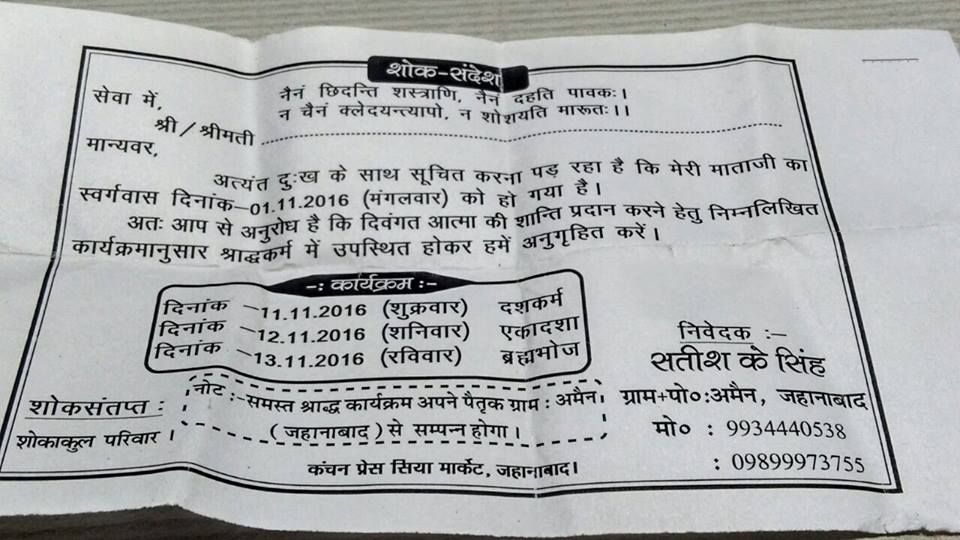 शोक-संदेश
नैनं छिदन्ति शस्त्राणि, नैनं दहति पावकः।
न चैनं क्लेदयन्त्यापो, न शोशयति मारूतः।।
सेवा में,
श्री/श्रीमती
मान्यवर,
अत्यंत दुःख के साथ सूचित करना पड़ रहा है कि मेरी माताजी का
स्वर्गवास दिनांक–01.11.2016 (मंगलवार) को हो गया है।
अतः आप से अनुरोध है कि दिवंगत आत्मा की शान्ति प्रदान करने हेतु निम्नलिखित
कार्यक्रमानुसार श्राद्धकर्म में उपस्थित होकर हमें अनुगृहित करें।
-: कार्यक्रम :-
दिनांक –11.11.2016 (शुक्रवार) दशकर्म
दिनांक –12.11.2016 (शनिवार) एकादशा
दिनांक –13.11.2016 (रविवार) ब्रह्मभोज
नोट :–समस्त श्राद्ध कार्यक्रम अपने पैतृक ग्राम : अमैन
(जहानाबाद) से सम्पन्न होगा।
शोकसंतप्त :
शोकाकुल परिवार।
निवेदक :–
सतीश के सिंह
ग्राम+पो०:अमैन, जहानाबाद
मो० : 9934440538
: 09899973755
कंचन प्रेस सिया मार्केट, जहानाबाद।